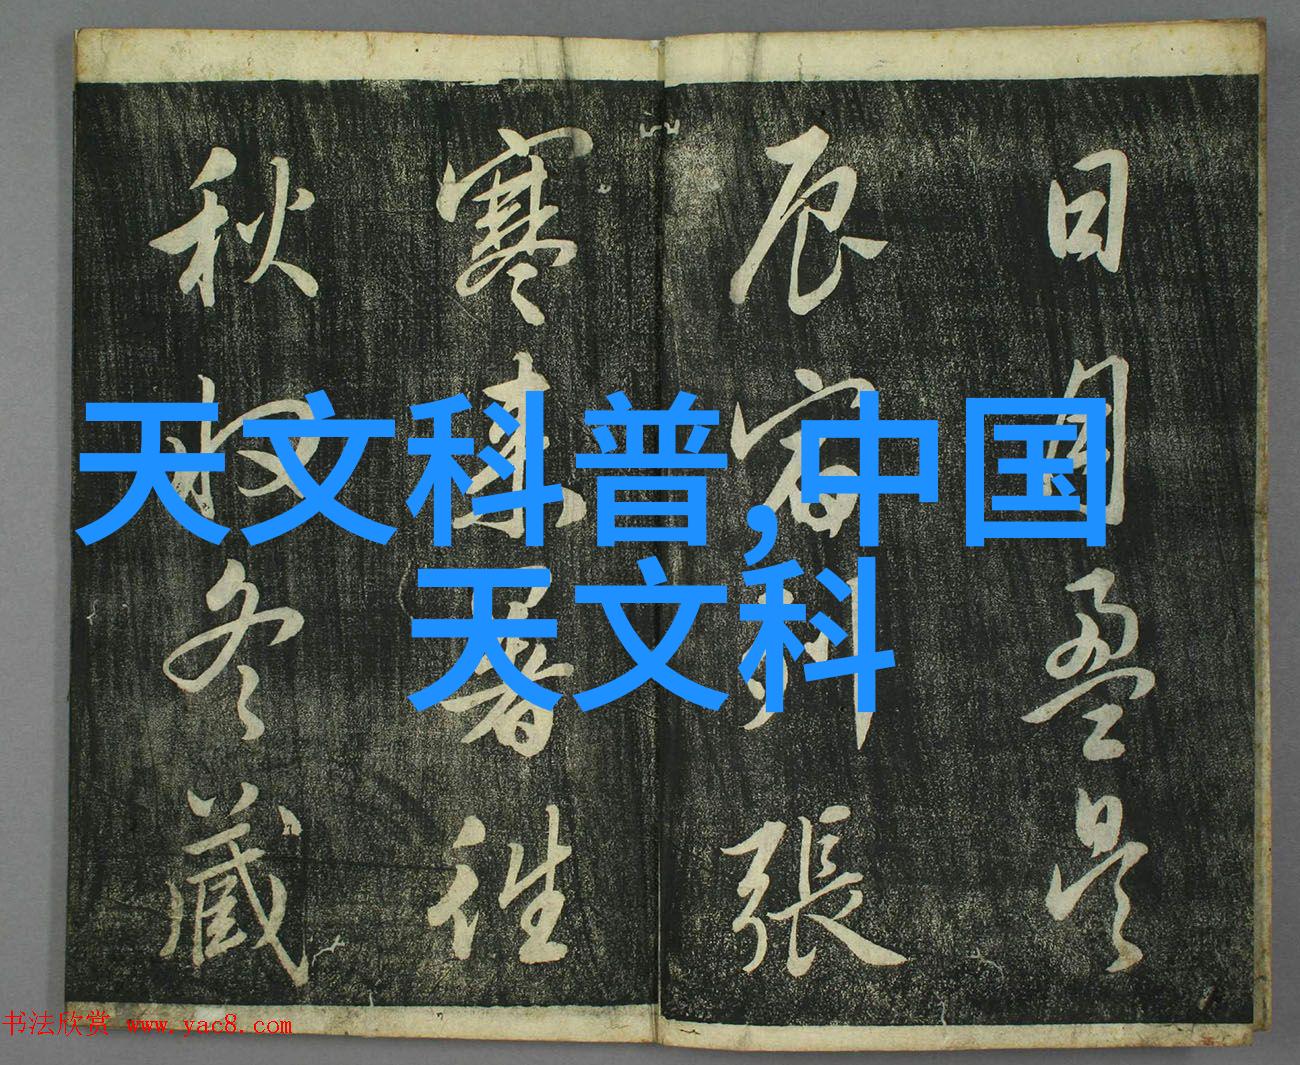 日月盈昃
辰宿列張
寒来暑往
秋收冬藏
天文科普,中国
天文科
书法欣赏 www.yac8.com